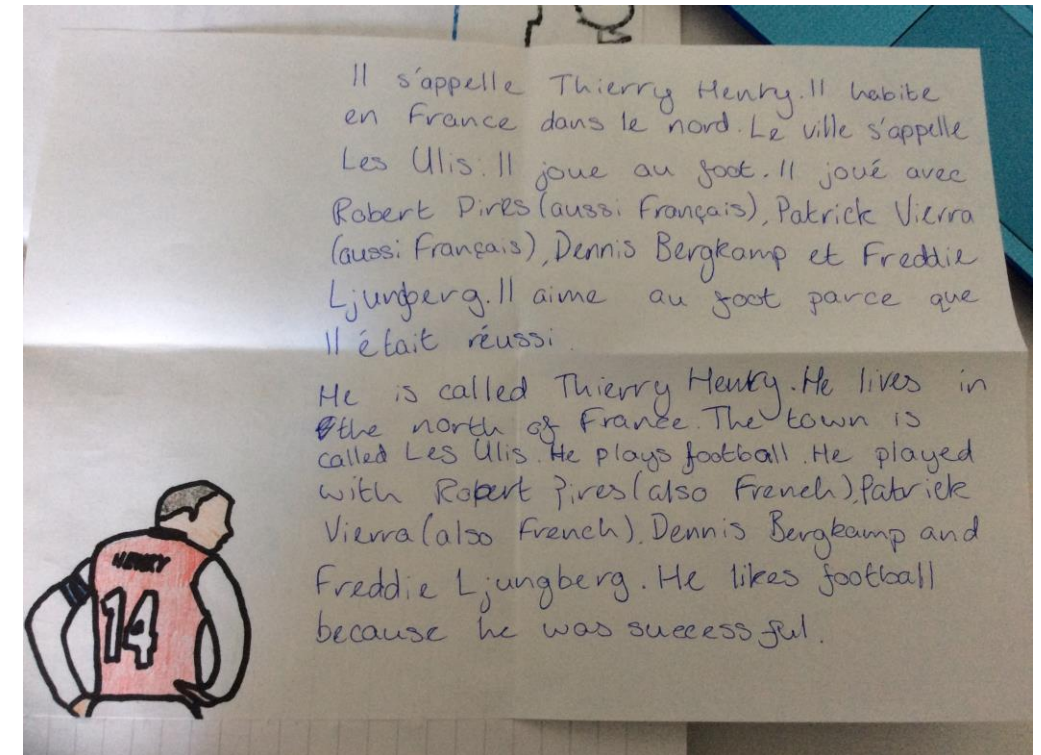 Il s'appelle Thierry Henry. Il habite
en France dans le nord. Le ville s'appelle
Les Ulis. Il joue au foot. Il joué avec
Robert Pires (aussi Français), Patrick Vierra
(aussi Français), Dennis Bergkamp et Freddie
Ljungberg. Il aime au foot parce que
Il était réussi.
He is called Thierry Henry. He lives in
the north of France. The town is
called Les Ulis. He plays football. He played
with Robert Pires (also French), Patrick
Vierra (also French), Dennis Bergkamp and
Freddie Ljungberg. He likes football
because he was successful.
HENRY
14